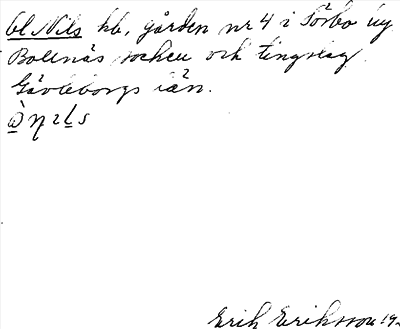 Ol Nils hb, gården nr 4 i Sörbo by
Bollnäs socken och tingslag
Gävleborgs län.
Erik Eriksson 19